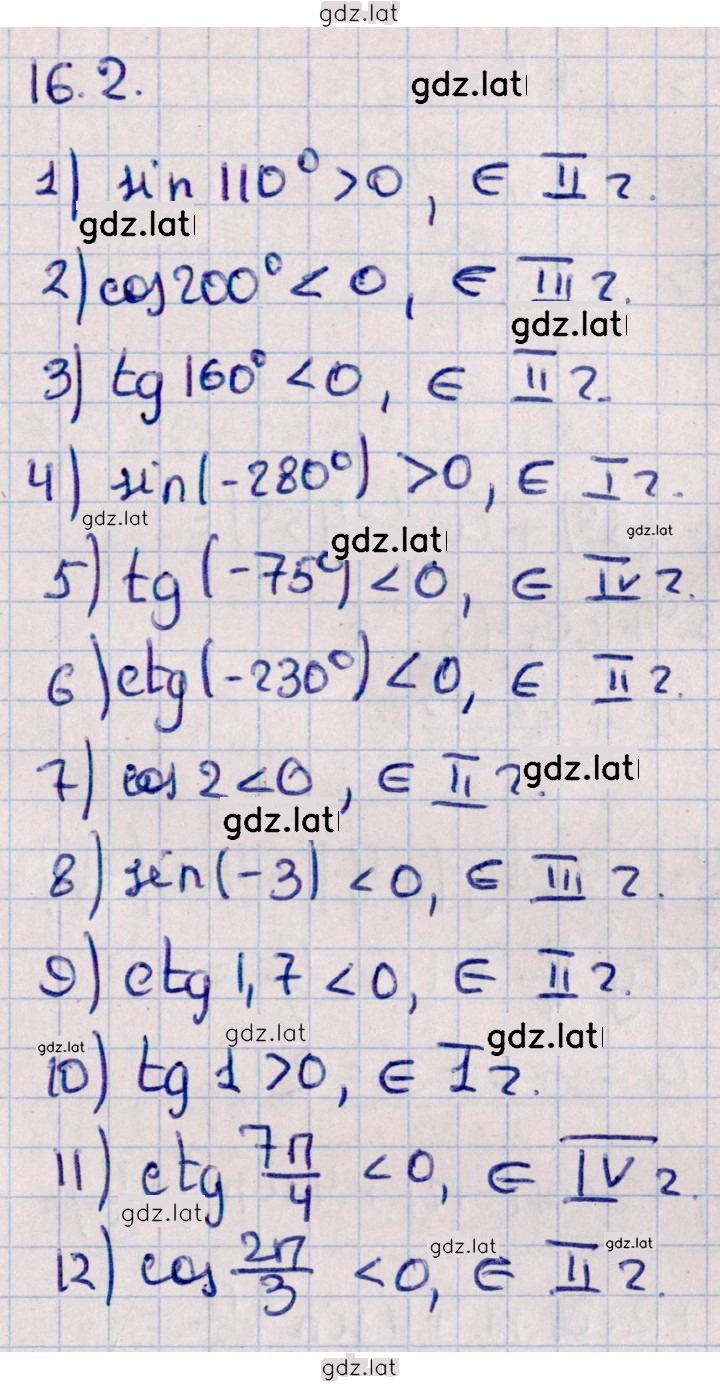 gdz.lat
16.2.
gdz.lat
1) sin 110° >0, ∈ II г.
gdz.lat
2) cos 200° < 0, ∈ III г.
gdz.lat
3) tg 160° <0, ∈ II г.
4) sin(-280°) >0, ∈ I г.
gdz.lat
gdz.lat
gdz.lat
5) tg (-75°) <0, ∈ IV г.
6) ctg(-230°) <0, ∈ II г.
7) cos 2 <0, ∈ II г.
gdz.lat
gdz.lat
8) sin(-3) <0, ∈ III г.
9) ctg 1,7 <0, ∈ II г.
gdz.lat
gdz.lat
gdz.lat
10) tg 1 >0, ∈ I г.
11) ctg 7π/4 <0, ∈ IV г.
gdz.lat
12) cos 2π/3 <0, ∈ II г.
gdz.lat
gdz.lat
gdz.lat